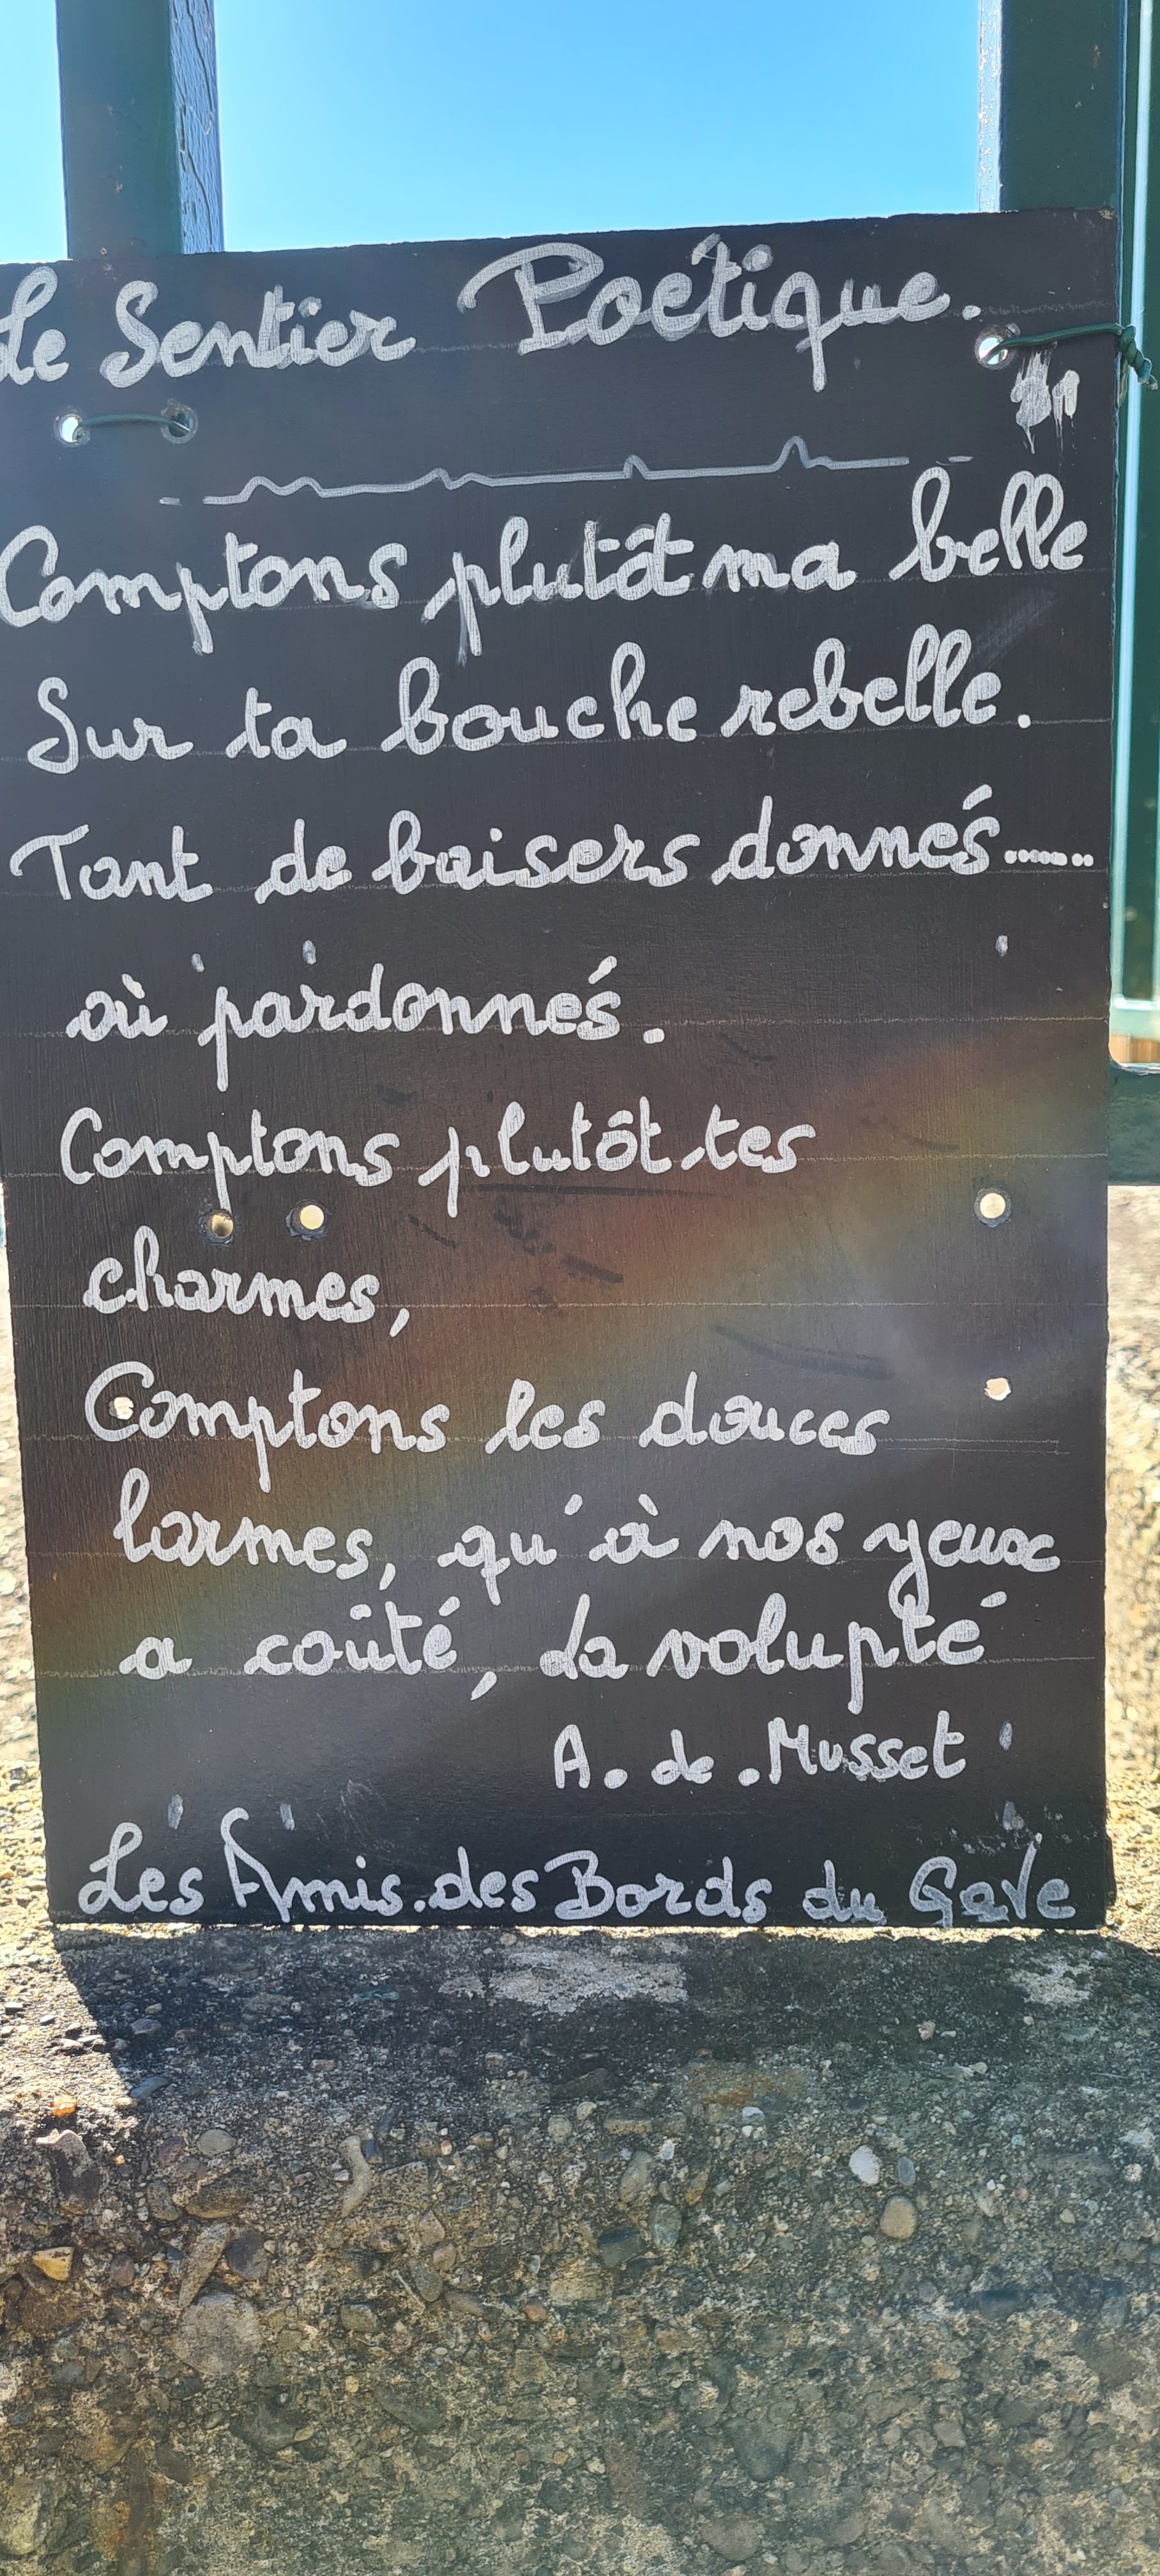 Le Sentier Poétique.
Comptons plutôt ma belle
Sur ta bouche rebelle.
Tant de baisers donnés.......
où pardonnés.
Comptons plutôt tes
charmes,
Comptons les douces
larmes, qu'à nos yeux
a coûté, La volupté
A. de. Musset
Les Amis. des Bords du Gave